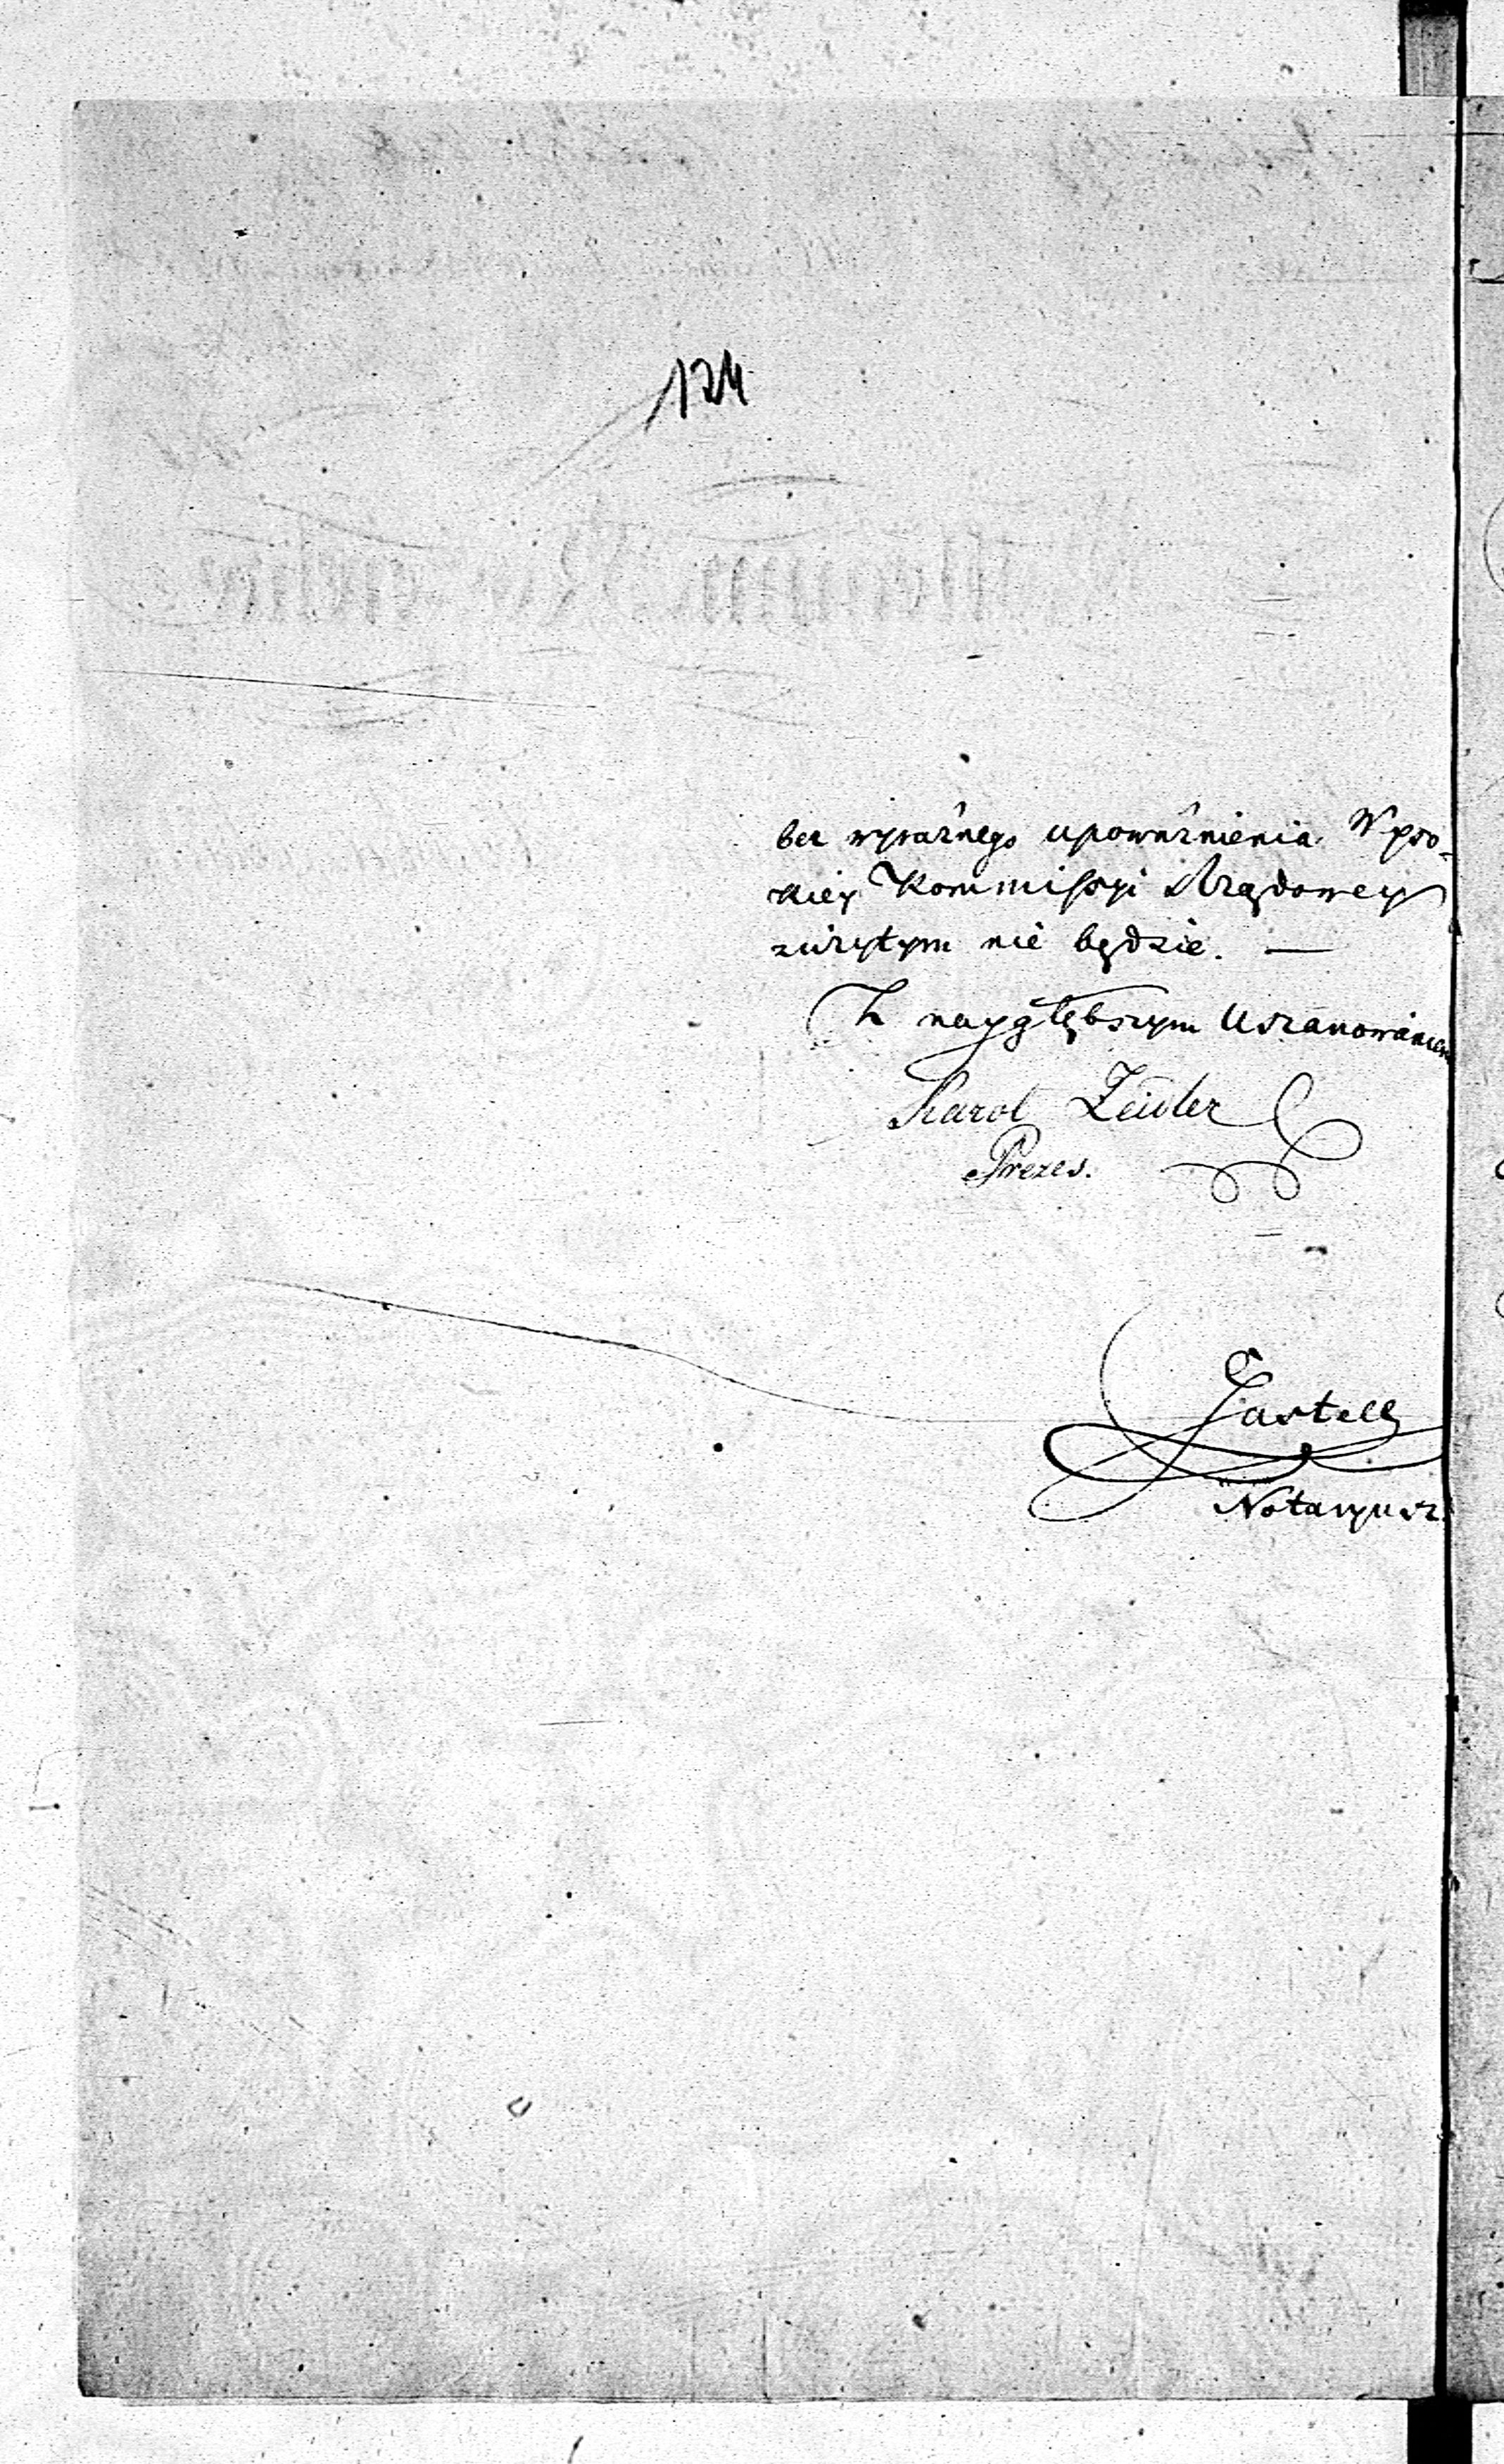 124
bez wyraźnego upoważnienia Wyso-
kiey Kommissyi Rządowey
zużytym nie będzie. —
Z naygłębszym Uszanowaniem
Karol Zeidler
Prezes.
Gastell
Notaryusz.